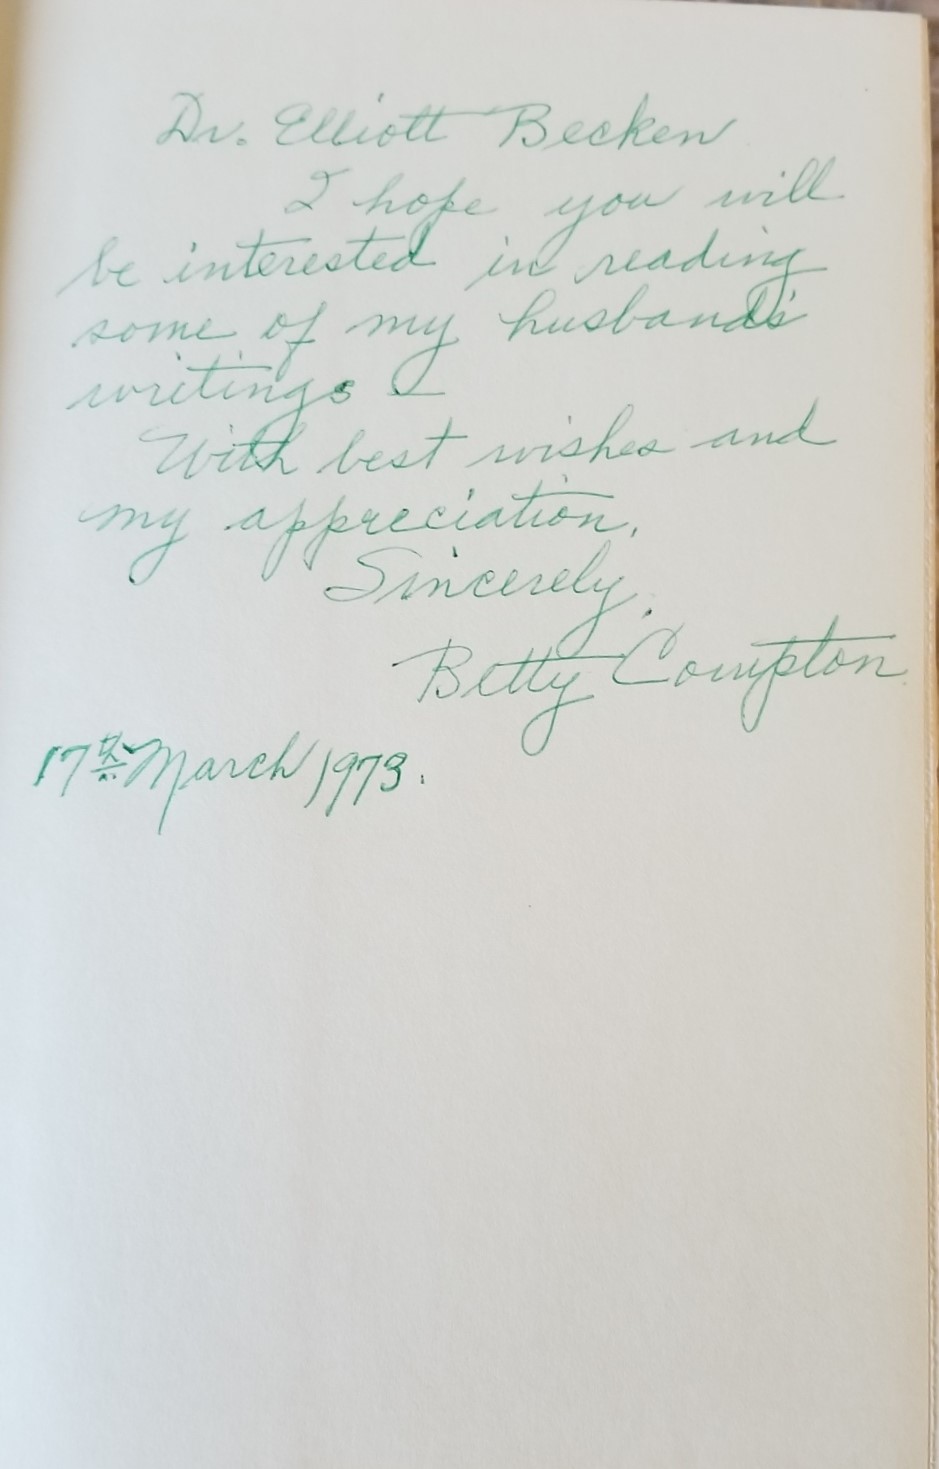 Dr. Elliott Becken
I hope you will
be interested in reading
some of my husband's
writings –
With best wishes and
my appreciation,
Sincerely,
Betty Compton
17th March 1973.